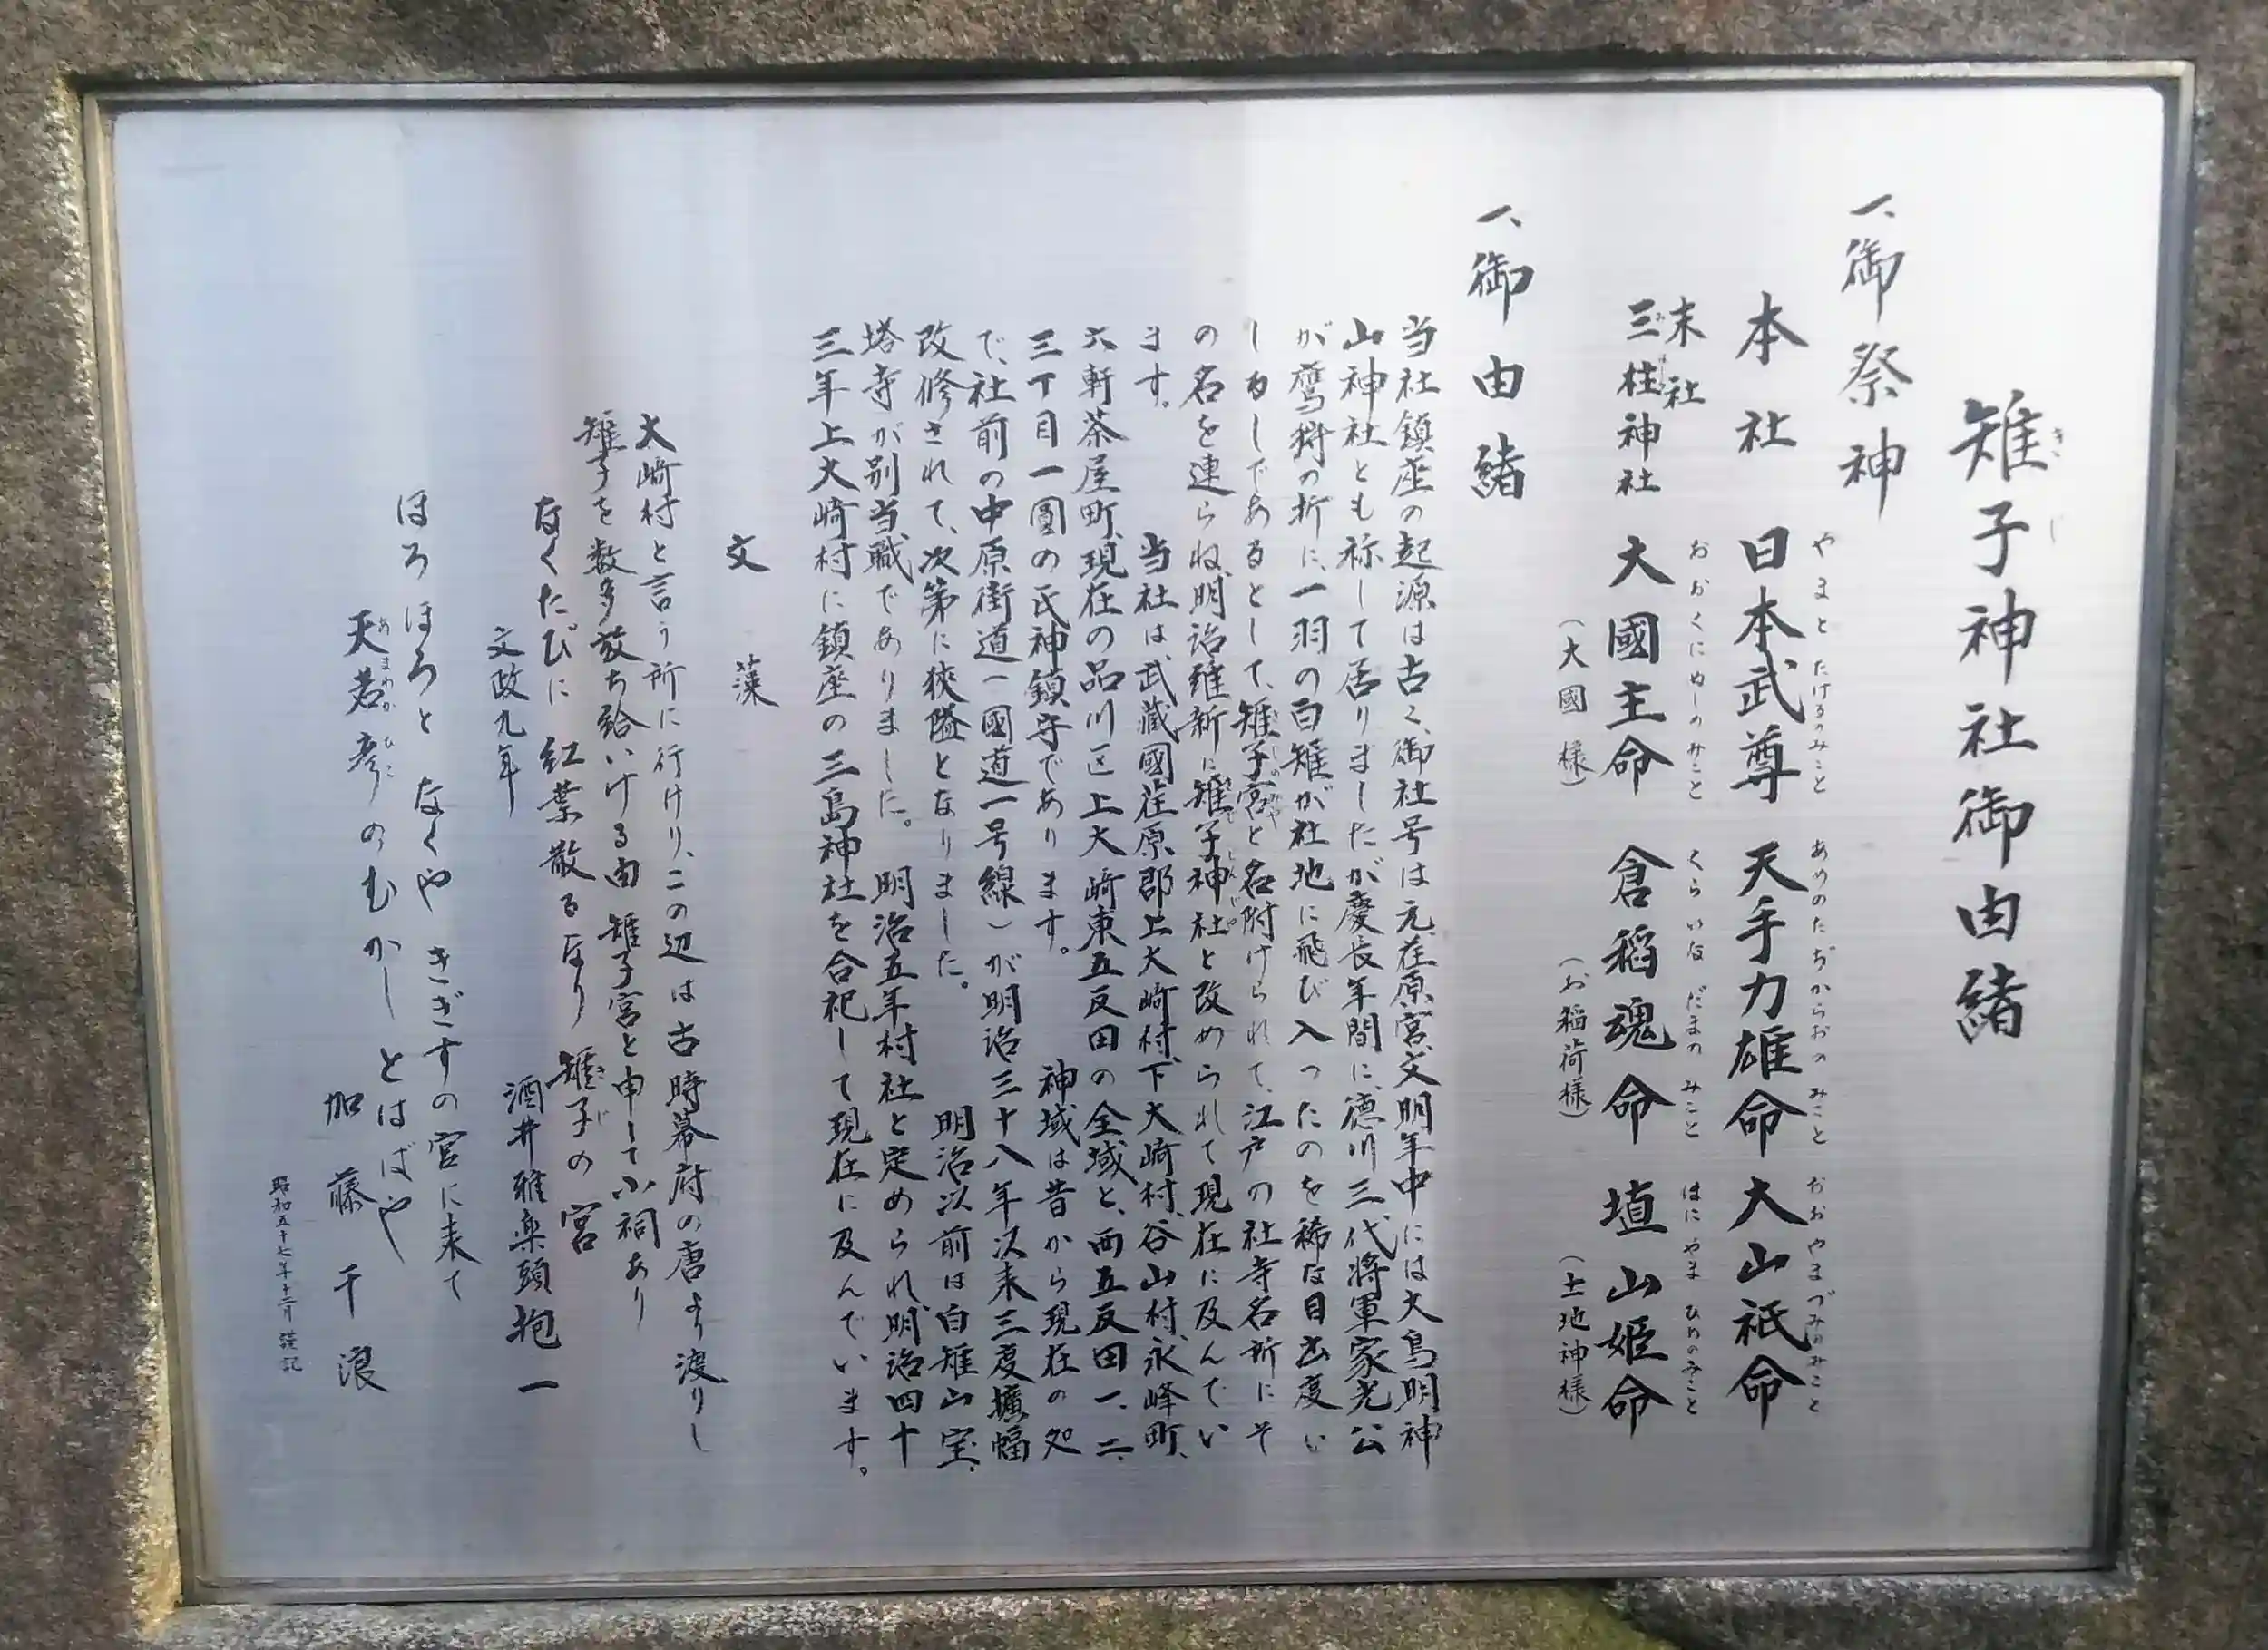 雉子神社御由緒
一、御祭神
本社 日本武尊 天手力雄命 大山祇命
末社
三柱神社 大國主命 倉稲魂命 埴山姫命
(大國様) (お稲荷様) (土地神様)
一、御由緒
当社鎮座の起源は古く、御社号は元荏原宮、文明年中には大鳥明神
山神社とも称して居りましたが慶長年間に、徳川三代将軍家光公
が鷹狩の折に、一羽の白雉が社地に飛び入ったのを稀な目出度い
しるしであるとして、雉子宮と名附けられて、江戸の社寺名所にそ
の名を連らね、明治維新に雉子神社と改められて現在に及んでい
ます。 当社は、武蔵國荏原郡上大崎村、下大崎村、谷山村、永峰町、
六軒茶屋町、現在の品川区上大崎東五反田の全域と、西五反田一、二、
三丁目一圓の氏神鎮守であります。 神域は昔から現在の処
で、社前の中原街道(國道一号線)が明治三十八年次来三度擴幅
改修されて、次第に狭隘となりました。 明治以前は白雉山宝
塔寺が別当職でありました。 明治五年村社と定められ、明治四十
三年上大崎村に鎮座の三島神社を合祀して現在に及んでいます。
文藻
大崎村と言う所に行けり、この辺は古時幕府の唐より渡りし
雉子を数多放ち給いける由 雉子宮と申して小祠あり
なくたびに 紅葉散るなり 雉子の宮
文政九年 酒井雅楽頭抱一
ほろほろと なくや きぎすの宮に来て
天若彦の むかし とはばや
加藤千浪
昭和五十七年十二月 謹記